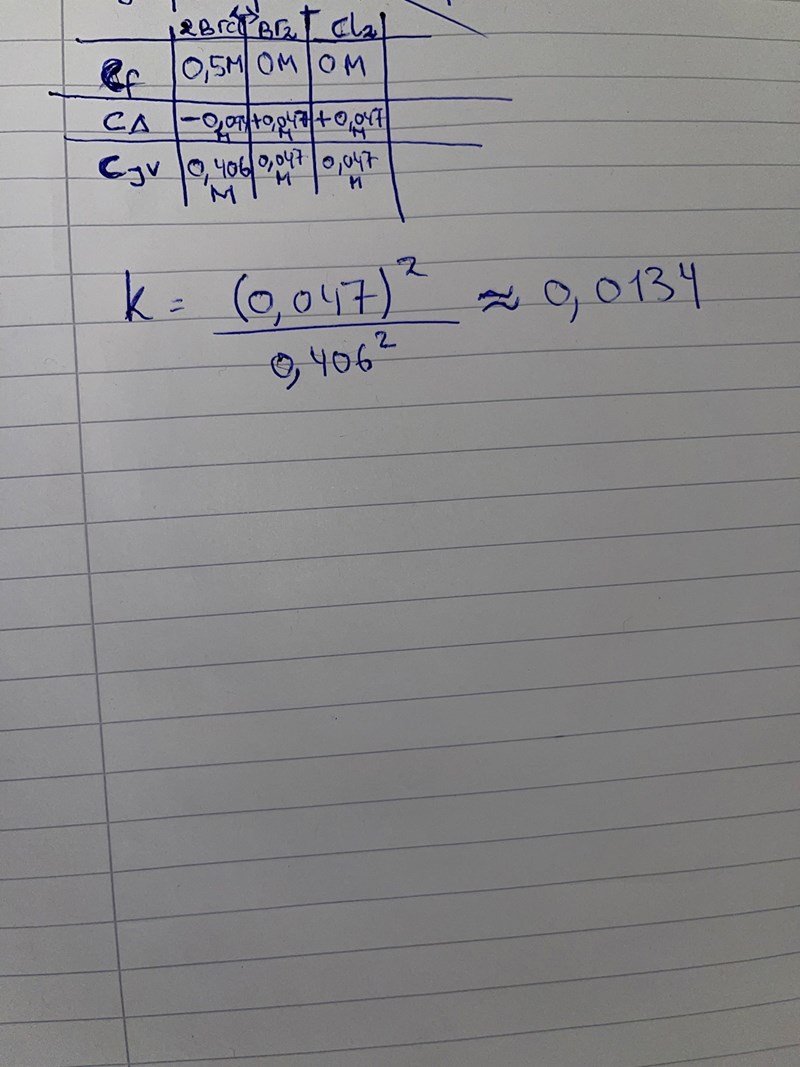 2BrCl ↔ Br2 + Cl2
Cf 0,5M 0M 0M
CΔ +0,047 M +0,047 M
Cgv 0,406 M 0,047 M 0,047 M
k = (0,047)² / 0,406² ≈ 0,0134